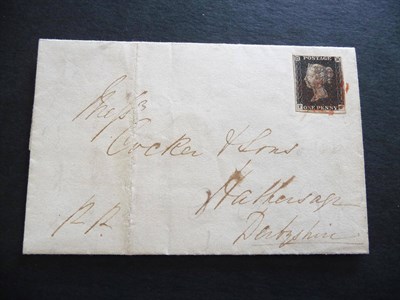 POSTAGE
ONE PENNY
Messrs
Cocker & Sons
Hathersage
Derbyshire